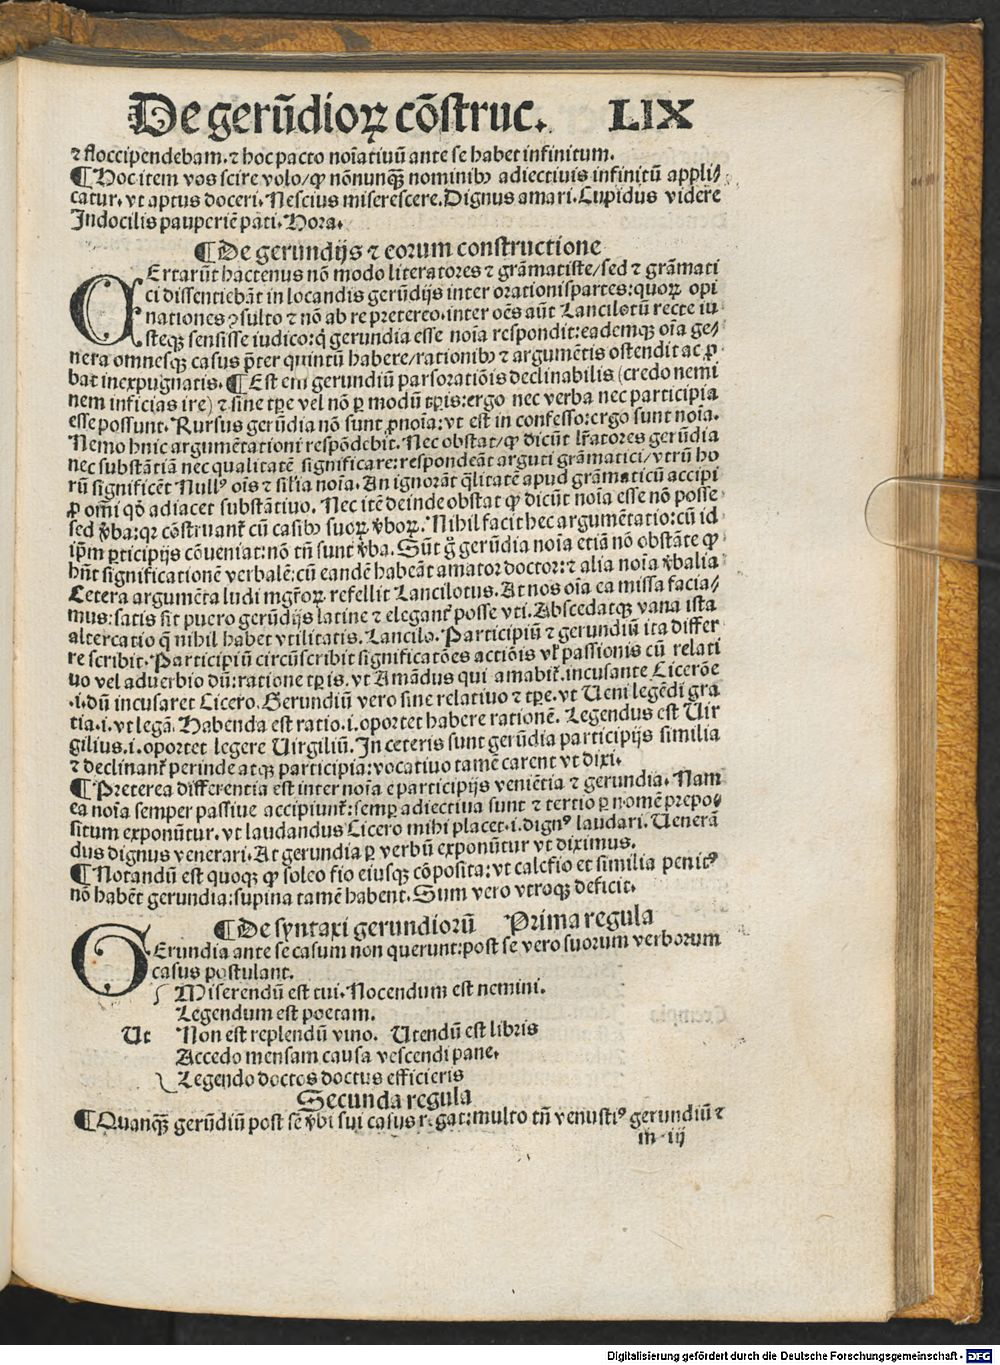 De gerūdioꝝ cōstruc. LIX
⁊ floccipendebam.⁊ hoc pacto noīatiuū ante se habet infinitum.
¶Hoc item vos scire volo/ꝙ nōnunqꝫ nominibꝰ adiectiuis infinitū appli⸗
catur. vt aptus doceri. Nescius miserescere. Dignus amari. Cupidus videre
Indocilis pauperiē pati. Hora.
¶De gerundijs ⁊ eorum constructione
CErtarūt hactenus nō modo literatores ⁊ grāmatiste/sed ⁊ grāmati
ci dissentiebāt in locandis gerūdijs inter orationispartes: quoꝝ opi
nationes ꝯsulto ⁊ nō ab re pretereo. inter oēs aūt Lancilotū recte iu
steqꝫ sensisse iudico: q̄ gerundia esse noīa respondit: eademqꝫ oīa ge⸗
nera omnesqꝫ casus p̄ter quintū habere/rationibꝰ ⁊ argumētis ostendit ac ꝓ
bat inexpugnatis. ¶Est eni gerundiū parsoratiōis declinabilis (credo nemi
nem inficias ire) ⁊ sine tꝑe vel nō ꝑ modū tꝑis: ergo nec verba nec participia
esse possunt. Rursus gerūdia nō sunt ꝓnoīa: vt est in confesso: ergo sunt noīa.
Nemo huic argumētationi respōdebit. Nec obstat/ꝙ dicūt lr̄atores gerūdia
nec substātiā nec qualitatē significare: respondeāt arguti grāmatici/vtrū ho
rū significēt Nullꝰ oīs ⁊ sīlia noīa. An ignorāt q̄litatē apud grāmaticū accipi
ꝓ omī qd̄ adiacet substātiuo. Nec itē deinde obstat ꝙ dicūt noīa esse nō posse
sed v̄ba: qꝛ cōstruant̄ cū casibꝰ suoꝝ v̄boꝝ. Nihil facit hec argumētatio: cū id
ip̄m ꝑticipijs cōueniat: nō tn̄ sunt v̄ba. Sūt g̊ gerūdia noīa etiā nō obstāte ꝙ
hn̄t significationē verbalē: cū eandē habeāt amator doctor: ⁊ alia noīa v̄balia
Cetera argumēta ludi mgr̄oꝝ refellit Lancilotus. At nos oīa ea missa facia⸗
mus: satis sit puero gerūdijs latine ⁊ elegant̄ posse vti. Abscedatqꝫ vana ista
altercatio q̄ nihil habet vtilitatis. Lancilo. Participiū ⁊ gerundiū ita differ
re scribit. Participiū circūscribit significatōes actiōis vl̓ passionis cū relati
uo vel aduerbio dū: ratione tꝑis. vt Amādus qui amabit̄. incusante Cicerōe
.i. dū incusaret Cicero. Gerundiū vero sine relatiuo ⁊ tꝑe. vt Ueni legēdi gra
tia .i. vt legā. Habenda est ratio .i. oportet habere rationē. Legendus est Uir
gilius .i. oportet legere Uirgiliū. In ceteris sunt gerūdia participijs similia
⁊ declinant̄ perinde atqꝫ participia: vocatiuo tamē carent vt dixi.
¶Preterea differentia est inter noīa e participijs veniētia ⁊ gerundia. Nam
ea noīa semper passiue accipiunt̄: semꝑ adiectiua sunt ⁊ tertio ꝑ nomē prepo⸗
situm exponūtur. vt laudandus Cicero mihi placet .i. dignꝰ laudari. Uenerā
dus dignus venerari. At gerundia ꝑ verbū exponūtur vt diximus.
¶Notandū est quoqꝫ ꝙ soleo fio eiusqꝫ cōposita: vt calefio et similia penitꝰ
nō habēt gerundia: supina tamē habent. Sum vero vtroqꝫ deficit.
¶De syntaxi gerundiorū Prima regula
GErundia ante se casum non querunt: post se vero suorum verborum
casus postulant.
Miserendū est tui. Nocendum est nemini.
Legendum est poetam.
Ut Non est replendū vino. Utendū est libris
Accedo mensam causa vescendi pane.
Legendo doctos doctus efficieris
Secunda regula
¶Quanqꝫ gerūdiū post se v̄bi sui casus regat: multo tn̄ venustiꝰ gerundiū ⁊
m iij
Digitalisierung gefördert durch die Deutsche Forschungsgemeinschaft - DFG